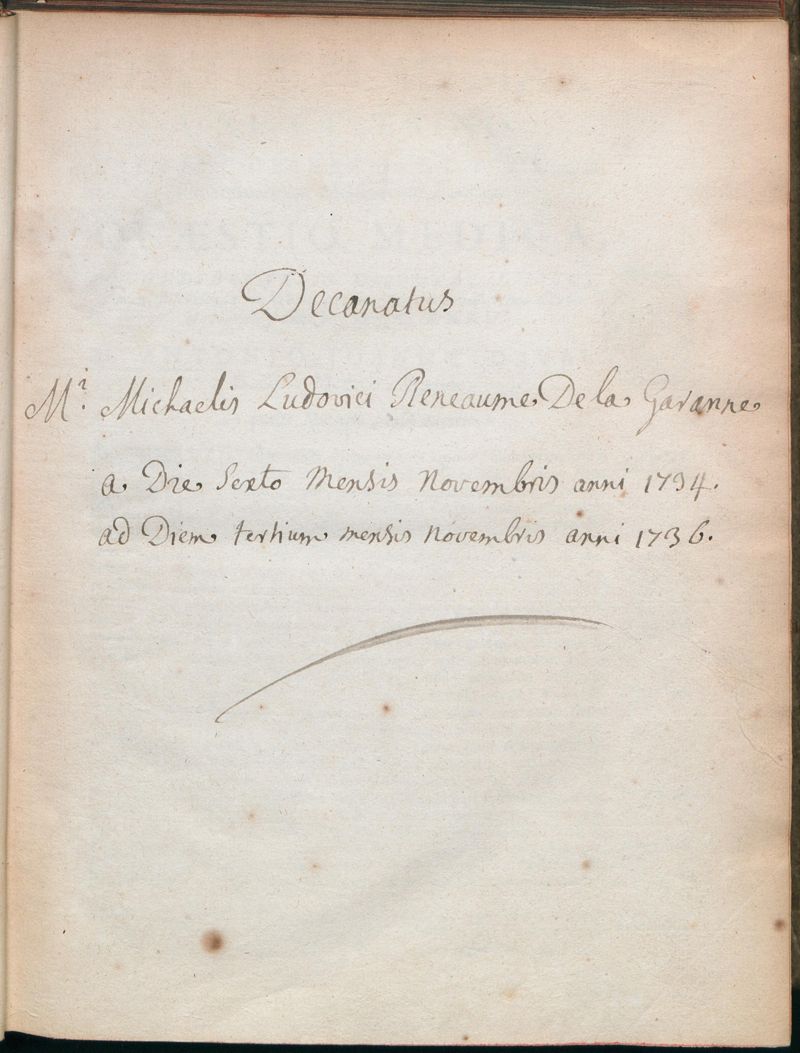 Decanatus
Mi. Michaelis Ludovici Reneaume De la Garanne
a Die Sexto Mensis Novembris anni 1734.
ad Diem tertium mensis Novembris anni 1736.